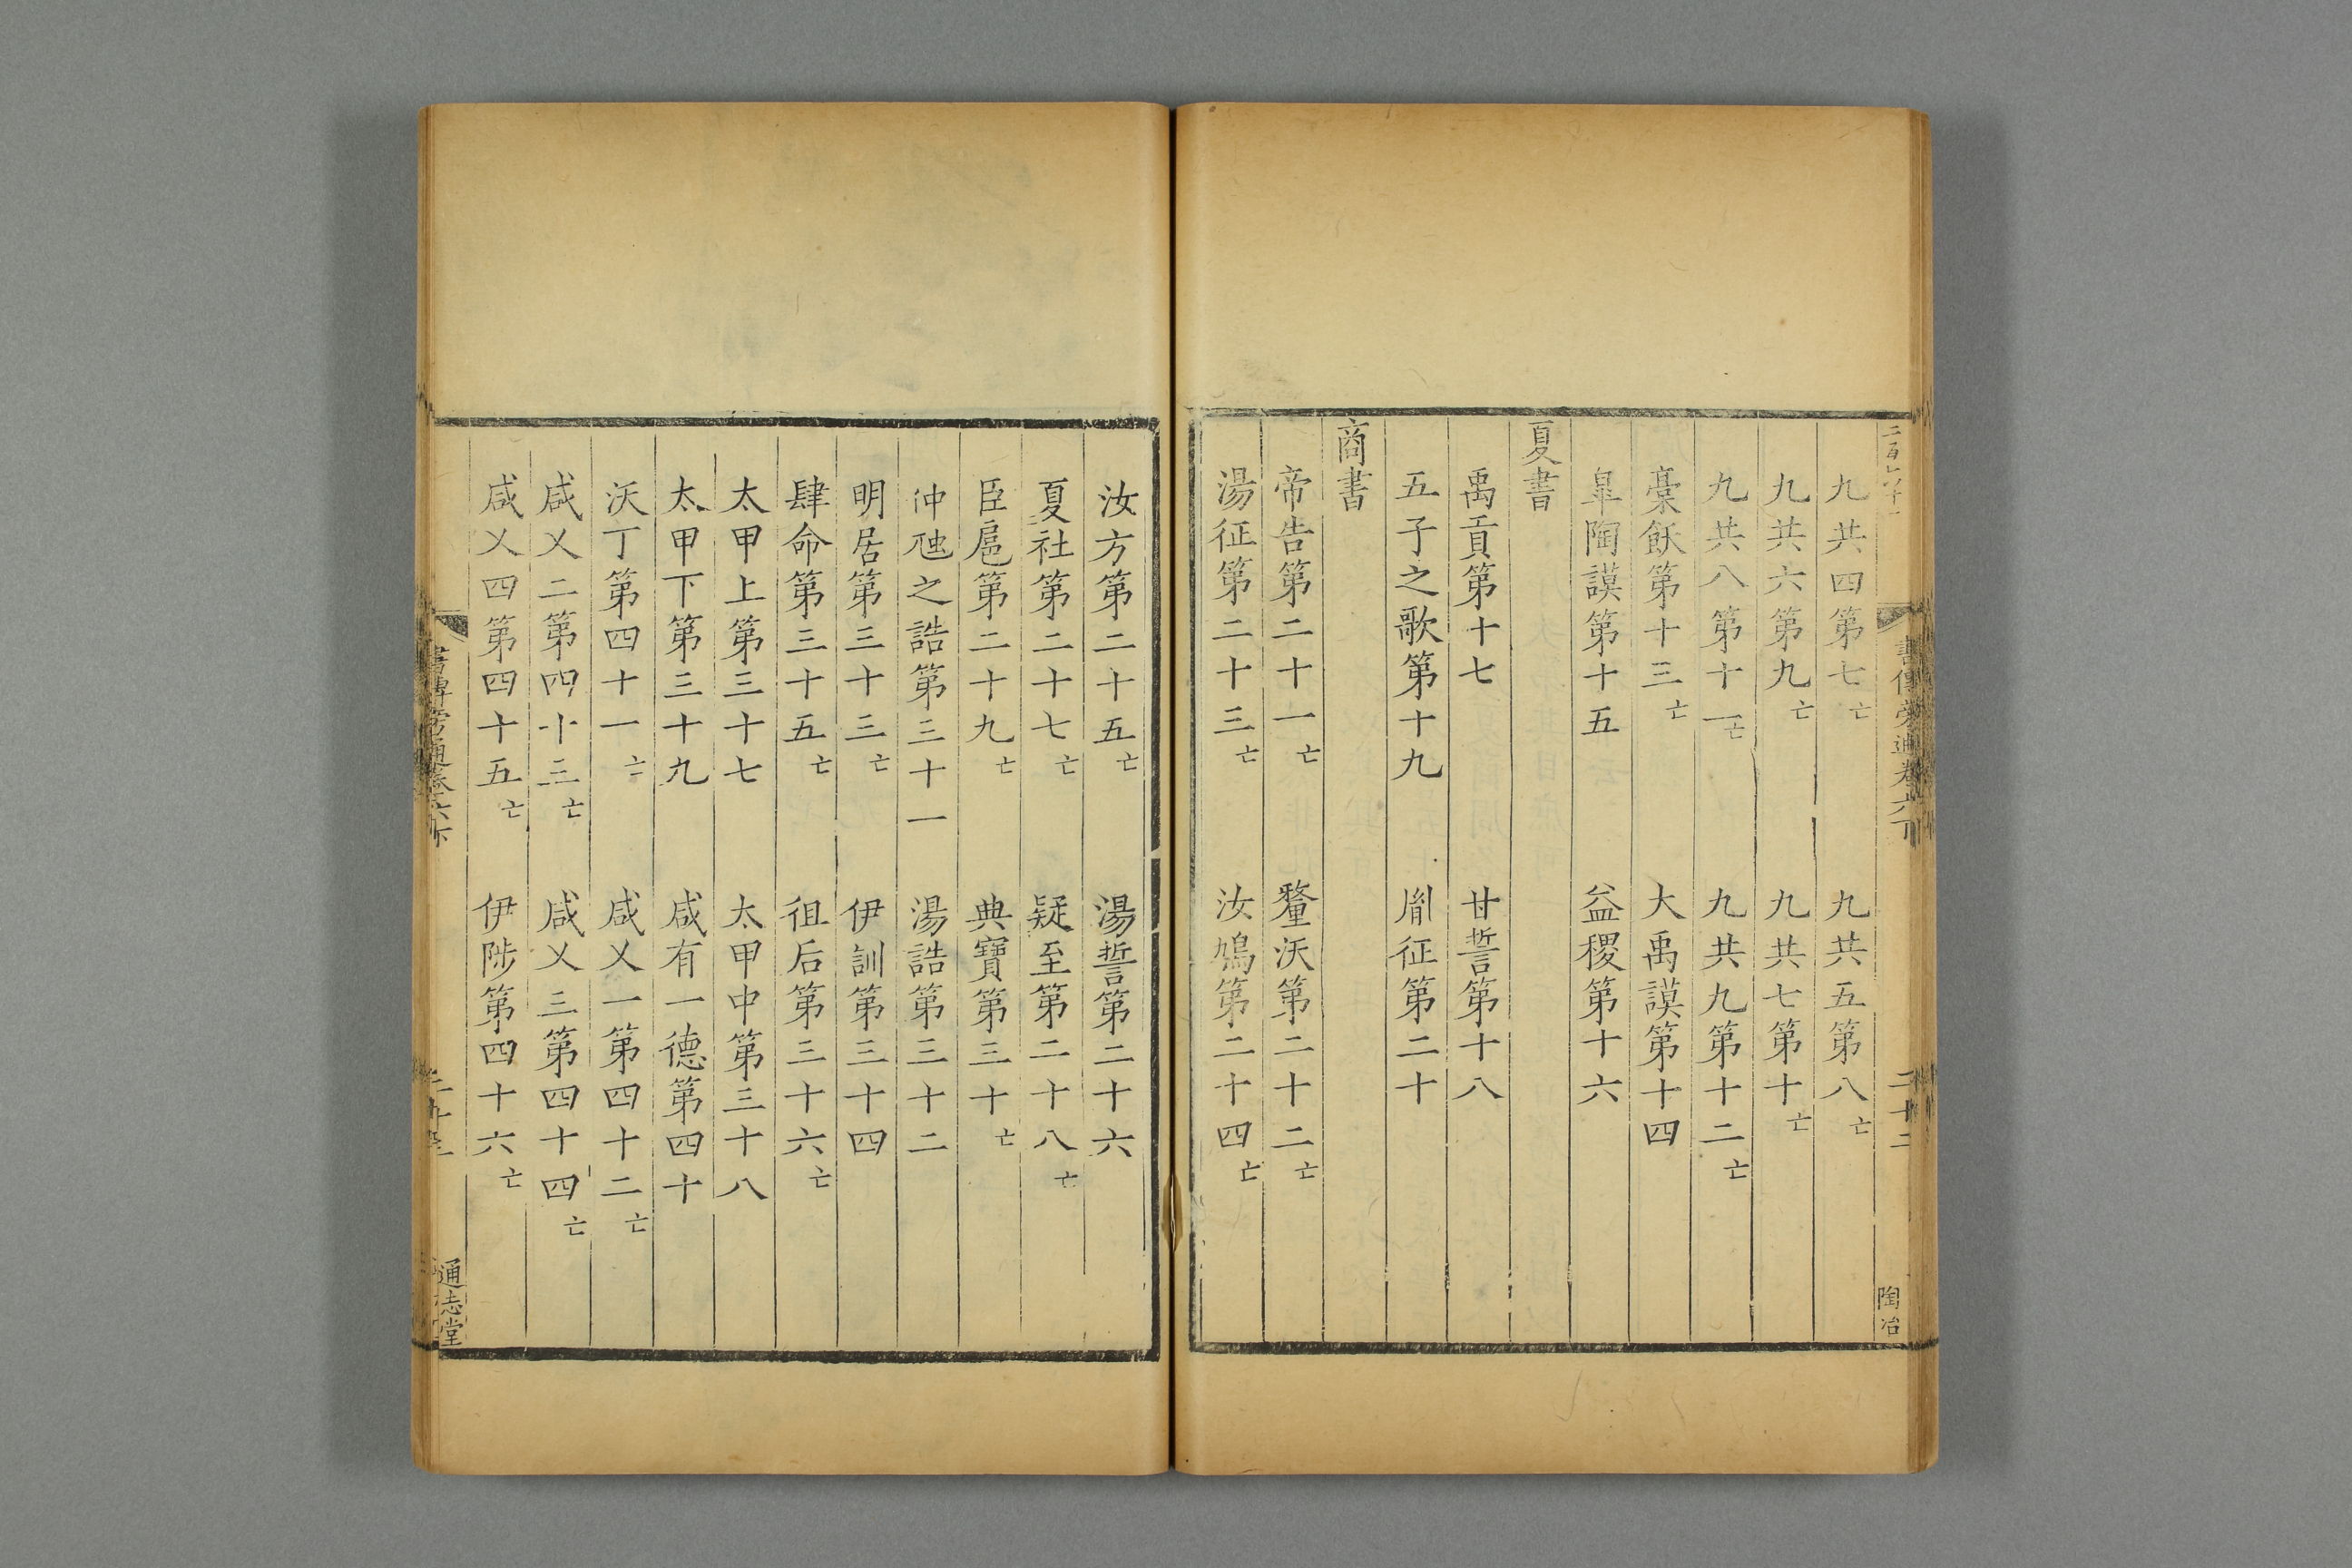 書傳旁通卷六下
二十二
陶冶
九共四第七亡 九共五第八亡
九共六第九亡 九共七第十亡
九共八第十一亡 九共九第十二亡
稾飫第十三亡 大禹謨第十四
臯陶謨第十五 益稷第十六
夏書
禹貢第十七 甘誓第十八
五子之歌第十九 胤征第二十
商書
帝告第二十一亡 釐沃第二十二亡
湯征第二十三亡 汝鳩第二十四亡
汝方第二十五亡 湯誓第二十六
夏社第二十七亡 疑至第二十八亡
臣扈第二十九亡 典寶第三十亡
仲虺之誥第三十一 湯誥第三十二
明居第三十三亡 伊訓第三十四
肆命第三十五亡 徂后第三十六亡
太甲上第三十七 太甲中第三十八
太甲下第三十九 咸有一德第四十
沃丁第四十一亡 咸乂一第四十二亡
咸乂二第四十三亡 咸乂三第四十四亡
咸乂四第四十五亡 伊陟第四十六亡
書傳旁通卷六下
通志堂